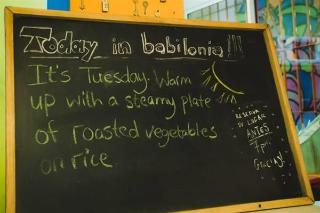 Today in babilonia!!!
It's Tuesday. Warm
up with a steamy plate
of roasted vegetables
on rice
RESERVA
TU LUGAR
ANTES
7pm
Gracias!